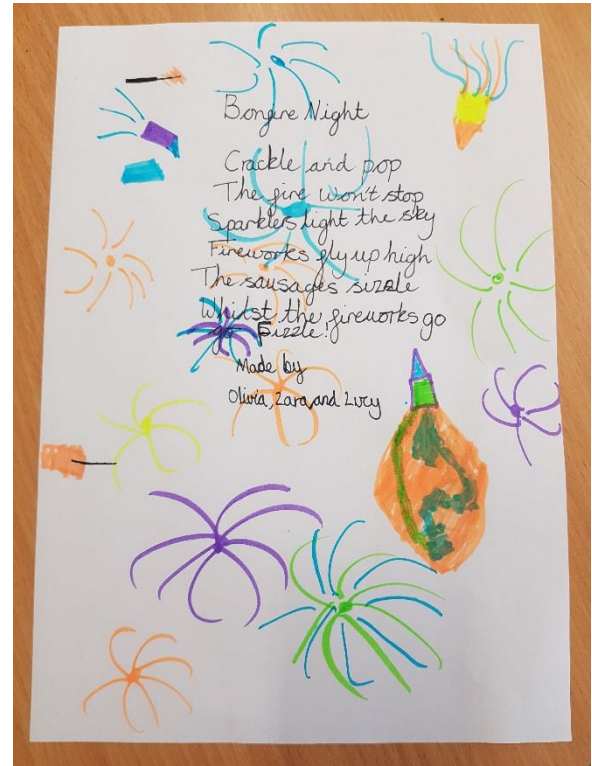 Bonfire Night
Crackle and pop
The fire won't stop
Sparklers light the sky
Fireworks fly up high
The sausages sizzle
Whilst the fireworks go
go Fizzle!
Made by
Olivia, Zara, and Lucy